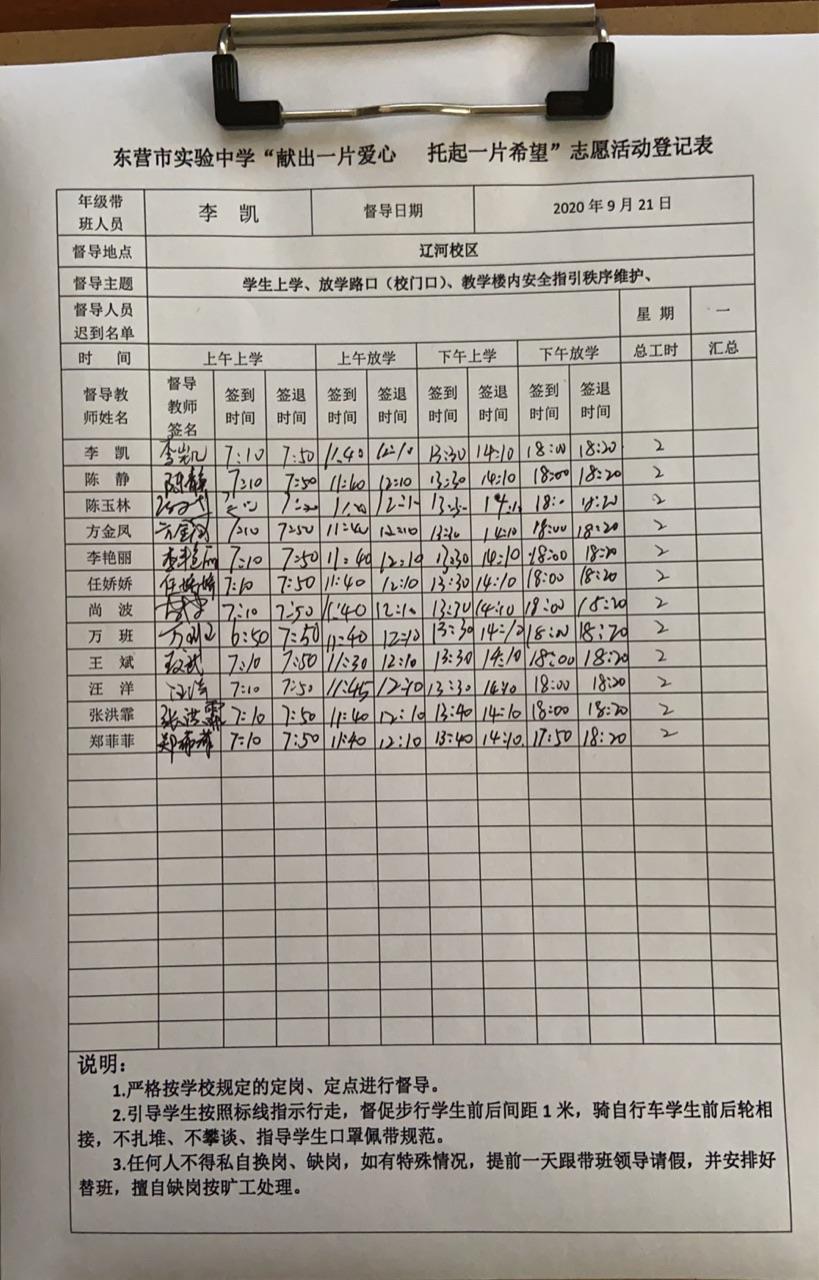 东营市实验中学“献出一片爱心 托起一片希望”志愿活动登记表
年级带班人员 李 凯 督导日期 2020年9月21日
督导地点 辽河校区
督导主题 学生上学、放学路口（校门口）、教学楼内安全指引秩序维护、
督导人员迟到名单 星 期 一
时 间 上午上学 上午放学 下午上学 下午放学 总工时 汇总
督导教师姓名 督导教师签名 签到时间 签退时间 签到时间 签退时间 签到时间 签退时间 签到时间 签退时间
李 凯 李凯 7:10 7:50 11:40 12:10 13:30 14:10 18:00 18:20 2
陈 静 陈静 7:10 7:50 11:40 12:10 13:30 14:10 18:00 18:20 2
陈玉林 18:20 2
方金凤 方金凤 7:10 7:50 11:40 12:10 13:30 14:10 18:00 18:20 2
李艳丽 李艳丽 7:10 7:50 11:40 12:10 13:30 14:10 18:00 18:20 2
任娇娇 任娇娇 7:10 7:50 11:40 12:10 13:30 14:10 18:00 18:20 2
尚 波 7:10 7:50 11:40 12:10 13:30 14:10 18:00 18:20 2
万 班 6:50 7:50 11:40 12:10 13:30 14:10 18:00 18:20 2
王 斌 王斌 7:10 7:50 11:30 12:10 13:30 14:10 18:00 18:20 2
汪 洋 汪洋 7:10 7:50 11:45 12:10 13:30 14:10 18:00 18:20 2
张洪霏 张洪霏 7:10 7:50 11:40 12:10 13:40 14:10 18:00 18:20 2
郑菲菲 郑菲菲 7:10 7:50 11:40 12:10 13:40 14:10 17:50 18:20 2
说明：
1.严格按学校规定的定岗、定点进行督导。
2.引导学生按照标线指示行走，督促步行学生前后间距1米，骑自行车学生前后轮相
接，不扎堆、不攀谈、指导学生口罩佩带规范。
3.任何人不得私自换岗、缺岗，如有特殊情况，提前一天跟带班领导请假，并安排好
替班，擅自缺岗按旷工处理。